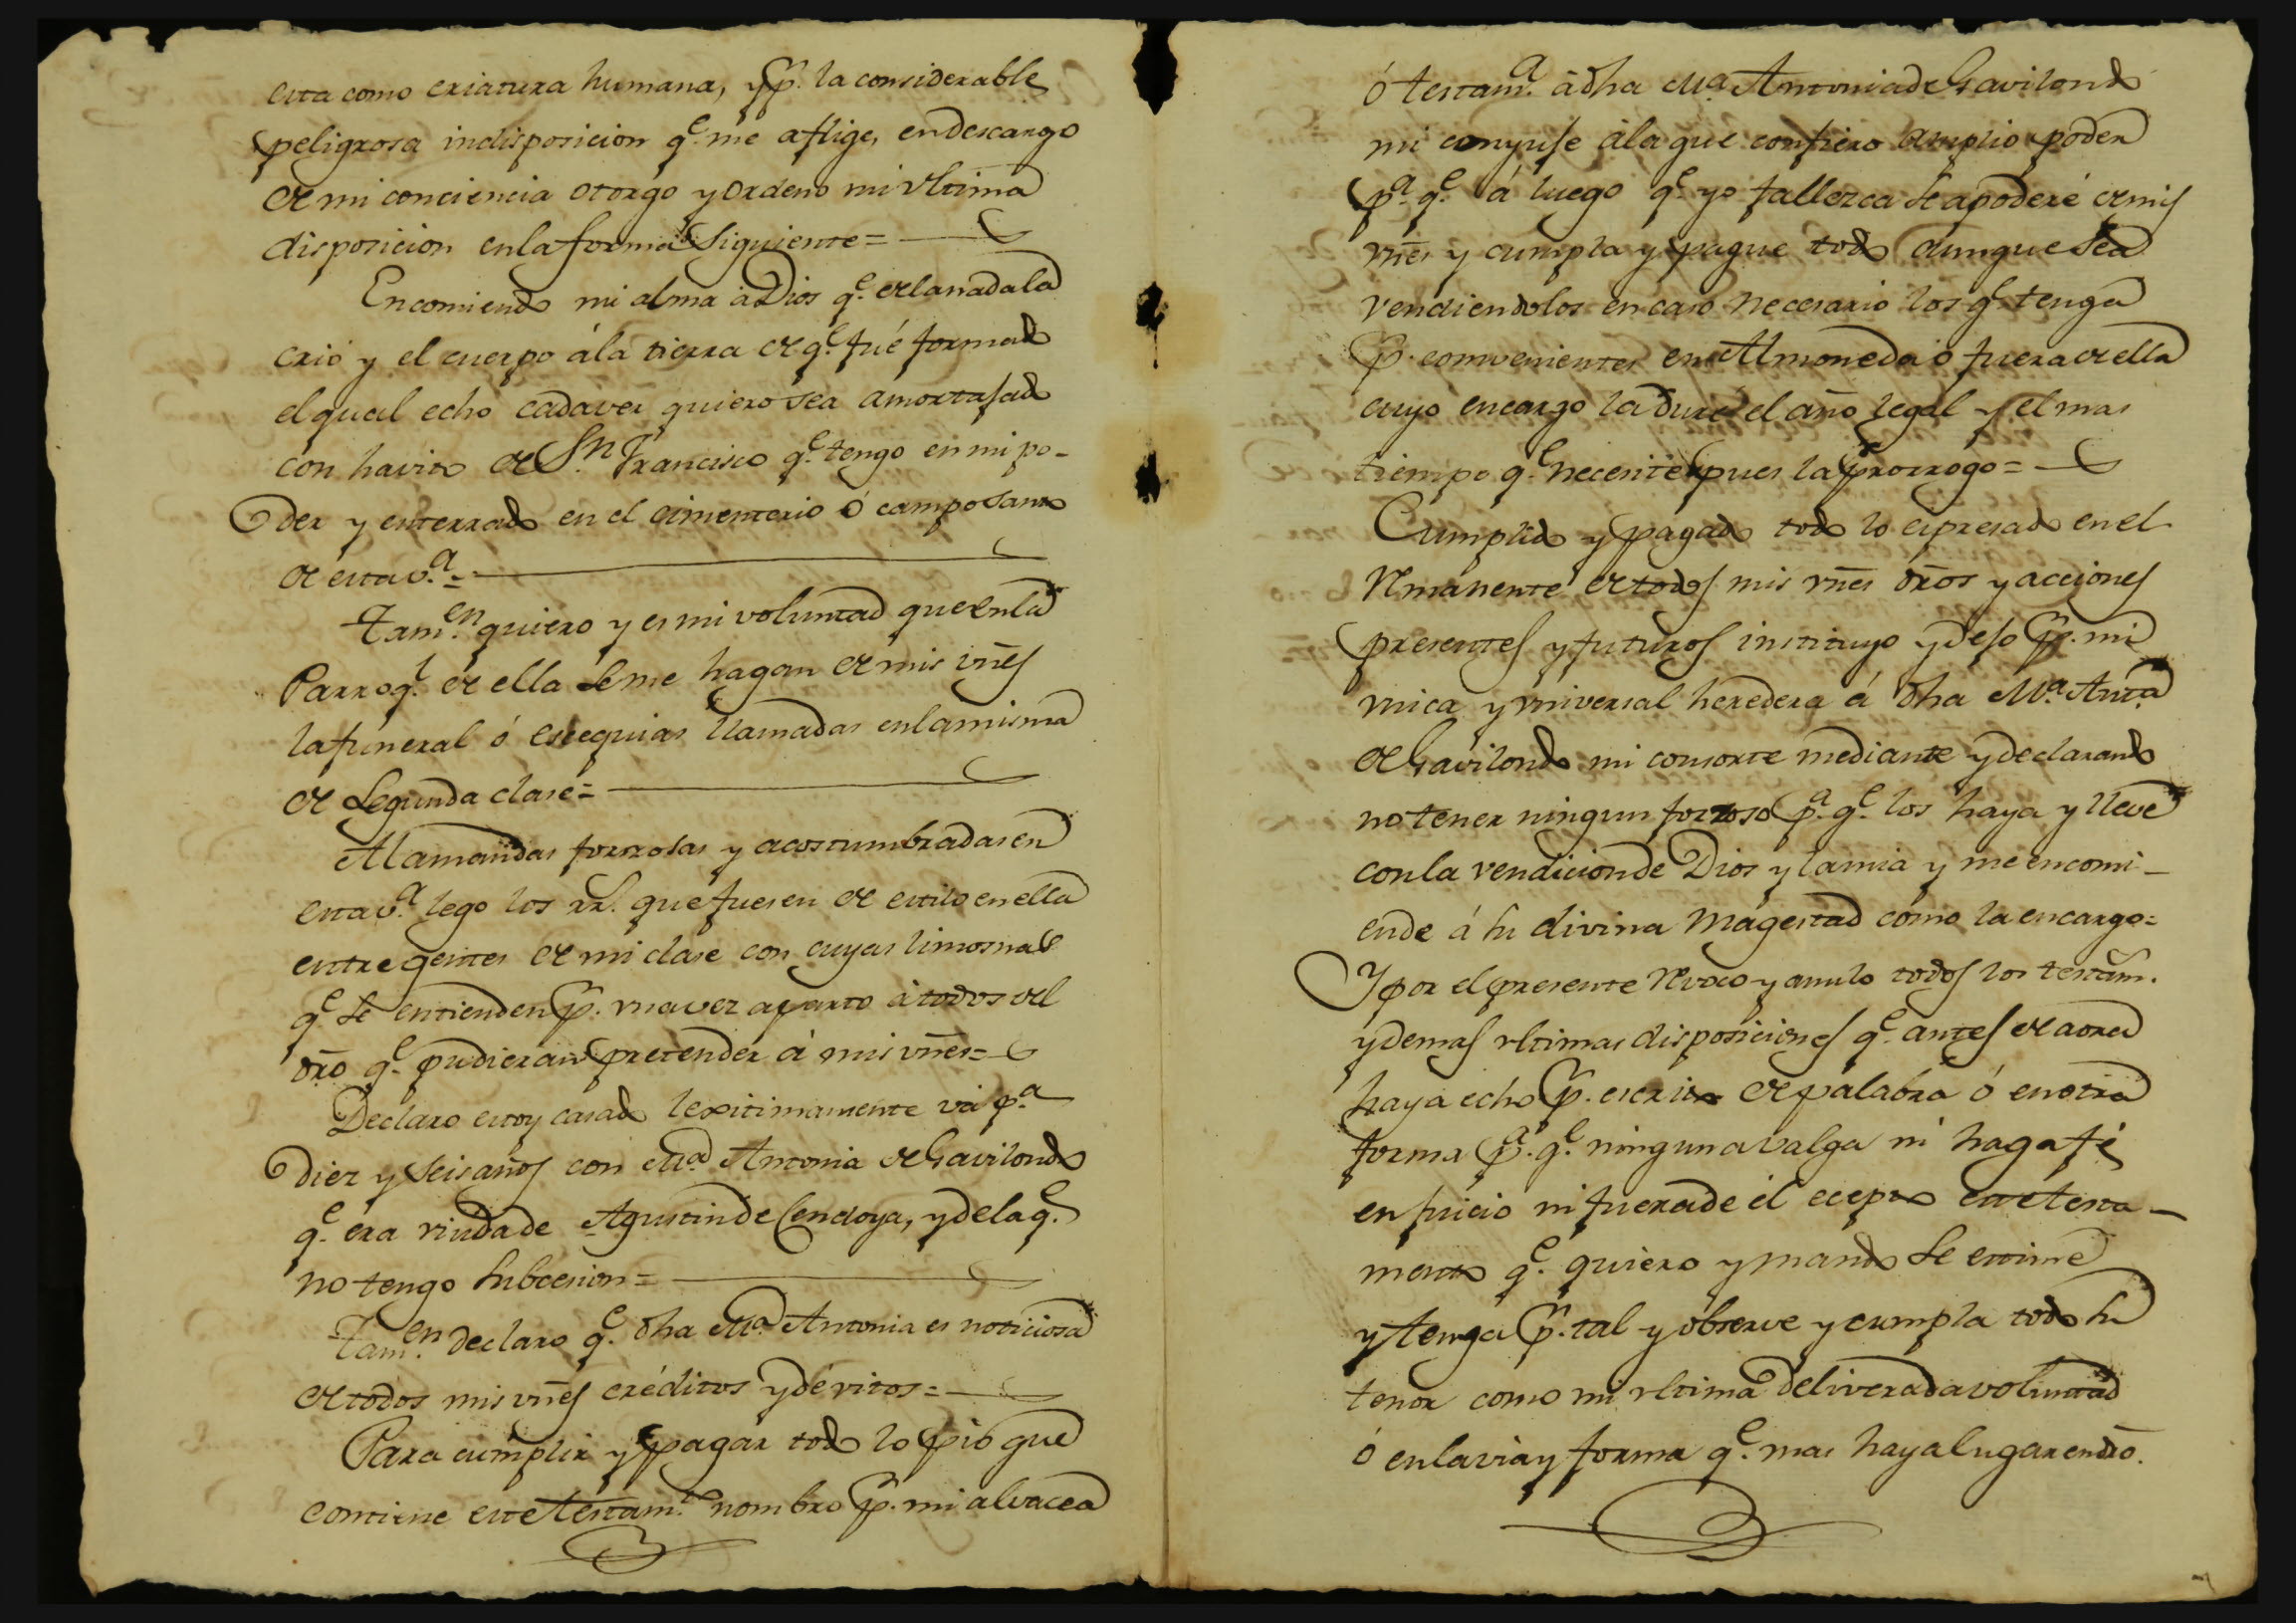 esta como criatura humana, y p.r la considerable
peligrosa indisposicion q.e me aflige, en descargo
de mi conciencia otorgo y ordeno mi vltima
disposicion en la forma siguiente=
Encomiendo mi alma á Dios q.e de la nada la
crió y el cuerpo á la tierra de q.e fué formado
el qual echo cadaver quiero sea amortajado
con havito de S.n Francisco q.e tengo en mi po-
der y enterrado en el cimenterio ó camposanto
de esta v.a=
Tam.en quiero y es mi voluntad que en la
Parroq.l de ella se me hagan de mis vñes
la funeral ó esequias llamadas en la misma
de segunda clase=
A lamandas forzosas y acostumbradas en
esta v.a lego los rr.s que fuesen de estilo en ella
entre gentes de mi clase con cuyas limosnas
q.e se entienden p.r vna vez aparto á todos del
dr̃o q.e pudieran pretender á mis vñes=
Declaro estoy casado lexitimamente vá p.a
diez y seis años con M.a Antonia de Gavilondo
q.e era viuda de Agustin de Cendoya, y de la q.e
no tengo subcesion=
Tam.en declaro q.e dha M.a Antonia es noticiosa
de todos mis vñes créditos y dévitos=
Para cumplir y pagar todo lo pio que
contiene este testam.to nombro p.r mi alvacea
ó testam.a á dha M.a Antonia de Gavilondo
mi conyuje á la que confiero amplio poder
p.a q.e á luego q.e yo fallezca se apodere de mis
vñes y cumpla y pague todo aunque sea
vendiendolos en caso necesario los q.e tenga
p.r convenientes en Almoneda ó fuera de ella
cuyo encargo la dure el año legal y el mas
tiempo q.e necesite pues la prorrogo=
Cumplido y pagado todo lo espresado en el
remanente de todos mis vñes dr̃os y acciones
presentes y futuros instituyo y dejo p.r mi
vnica y vniversal heredera á dha M.a Ant.a
de Gavilondo mi consorte mediante y declarando
no tener ningun forzoso p.a q.e los haya y lleve
con la vendicion de Dios y la mia y me encomi-
ende á su divina Magestad como la encargo=
Y por el presente revoco y anulo todos los testam.
y demas vltimas disposiciones q.e antes de aora
haya echo p.r escrito de palabra ó en otra
forma p.a q.e ninguna valga ni haga fé
en juicio ni fuera de él ecepto este testa-
mento q.e quiero y mando se estime
y tenga p.r tal y observe y cumpla todo su
tenor como mi vltima deliverada voluntad
ó en la via y forma q.e mas haya lugar en dr̃o.